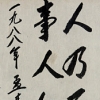 人乃
事人人
一九八八年